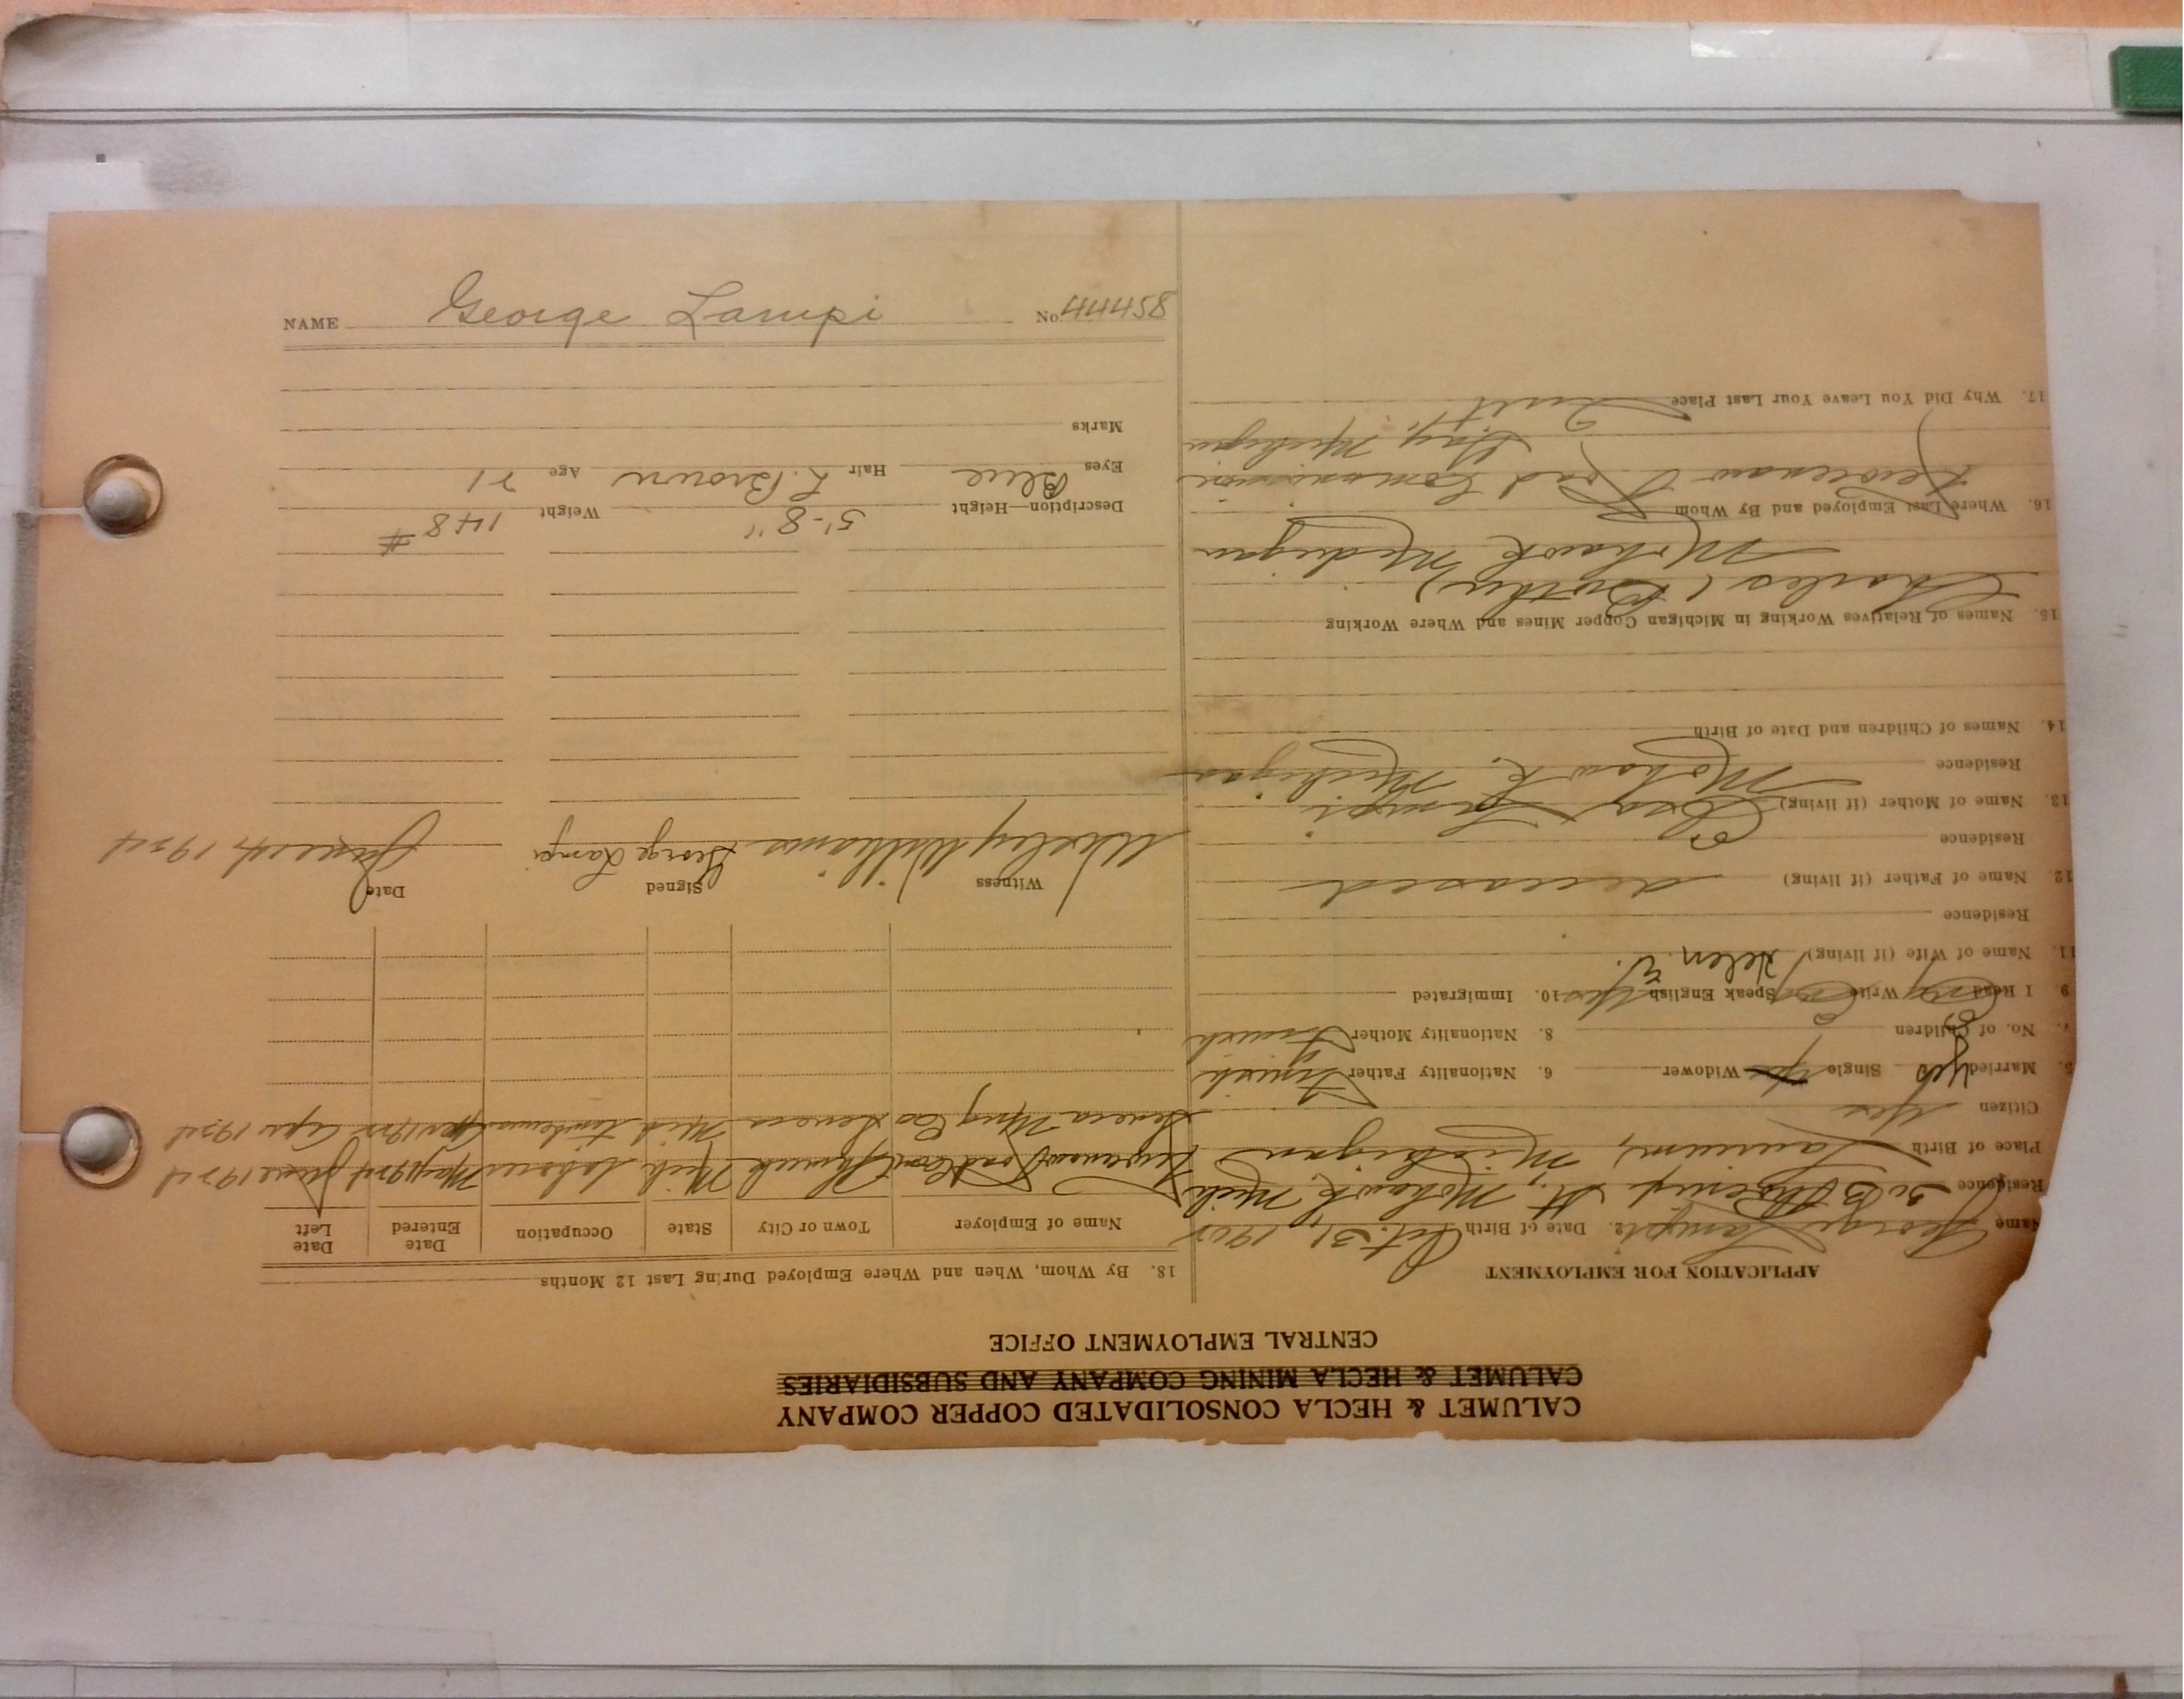 CALUMET & HECLA CONSOLIDATED COPPER COMPANY
CALUMET & HECLA MINING COMPANY AND SUBSIDIARIES
CENTRAL EMPLOYMENT OFFICE
APPLICATION FOR EMPLOYMENT
Name George Lampi 2. Date of Birth Oct. 31, 190
Residence St., Mohawk, Mich
Place of Birth Laurium, Michigan
Citizen Yes
5. Married Yes Single Yes Widower 6. Nationality Father Finnish
7. No. of Children 8. Nationality Mother Finnish
9. I Read Write Speak English Yes 10. Immigrated
11. Name of Wife (if living) Helen E.
Residence
12. Name of Father (if living) deceased
Residence
13. Name of Mother (if living) Lampi
Residence Mohawk, Michigan
14. Names of Children and Date of Birth
15. Names of Relatives Working in Michigan Copper Mines and Where Working
Charles (Brother)
Mohawk Michigan
16. Where Last Employed and By Whom
Keweenaw Road Commission
Michigan
17. Why Did You Leave Your Last Place Quit
18. By Whom, When and Where Employed During Last 12 Months
Name of Employer Town or City State Occupation Date Entered Date Left
Keweenaw Road Com Mich laborer May June
Seneca Mng Co Seneca Mich
Witness Signed Date
Wesley Williams George Lampi June
Description—Height 5'-8" Weight 148#
Eyes Blue Hair L. Brown Age 21
Marks
NAME George Lampi No. 44458